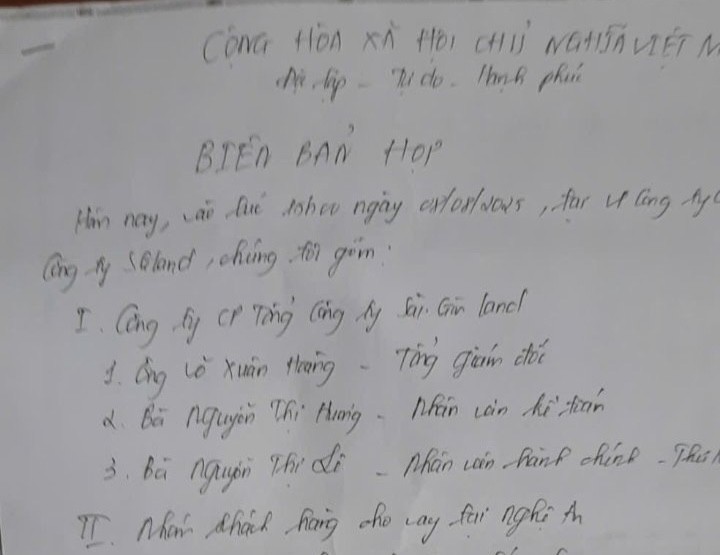 CỘNG HÒA XÃ HỘI CHỦ NGHĨA VIỆT N
Độc lập - Tự do - Hạnh phúc
BIÊN BẢN HỌP
Hôm nay, vào lúc ngày, tại VP Công ty
Công ty SGland, chúng tôi gồm:
I. Công ty CP Tổng Công ty Sài Gòn land
1. Ông Võ Xuân Hoàng - Tổng giám đốc
2. Bà Nguyễn Thị Hương - Nhân viên kế toán
3. Bà Nguyễn Thị - Nhân viên hành chính - Thư
II. Nhóm khách hàng cho vay tại Nghệ An